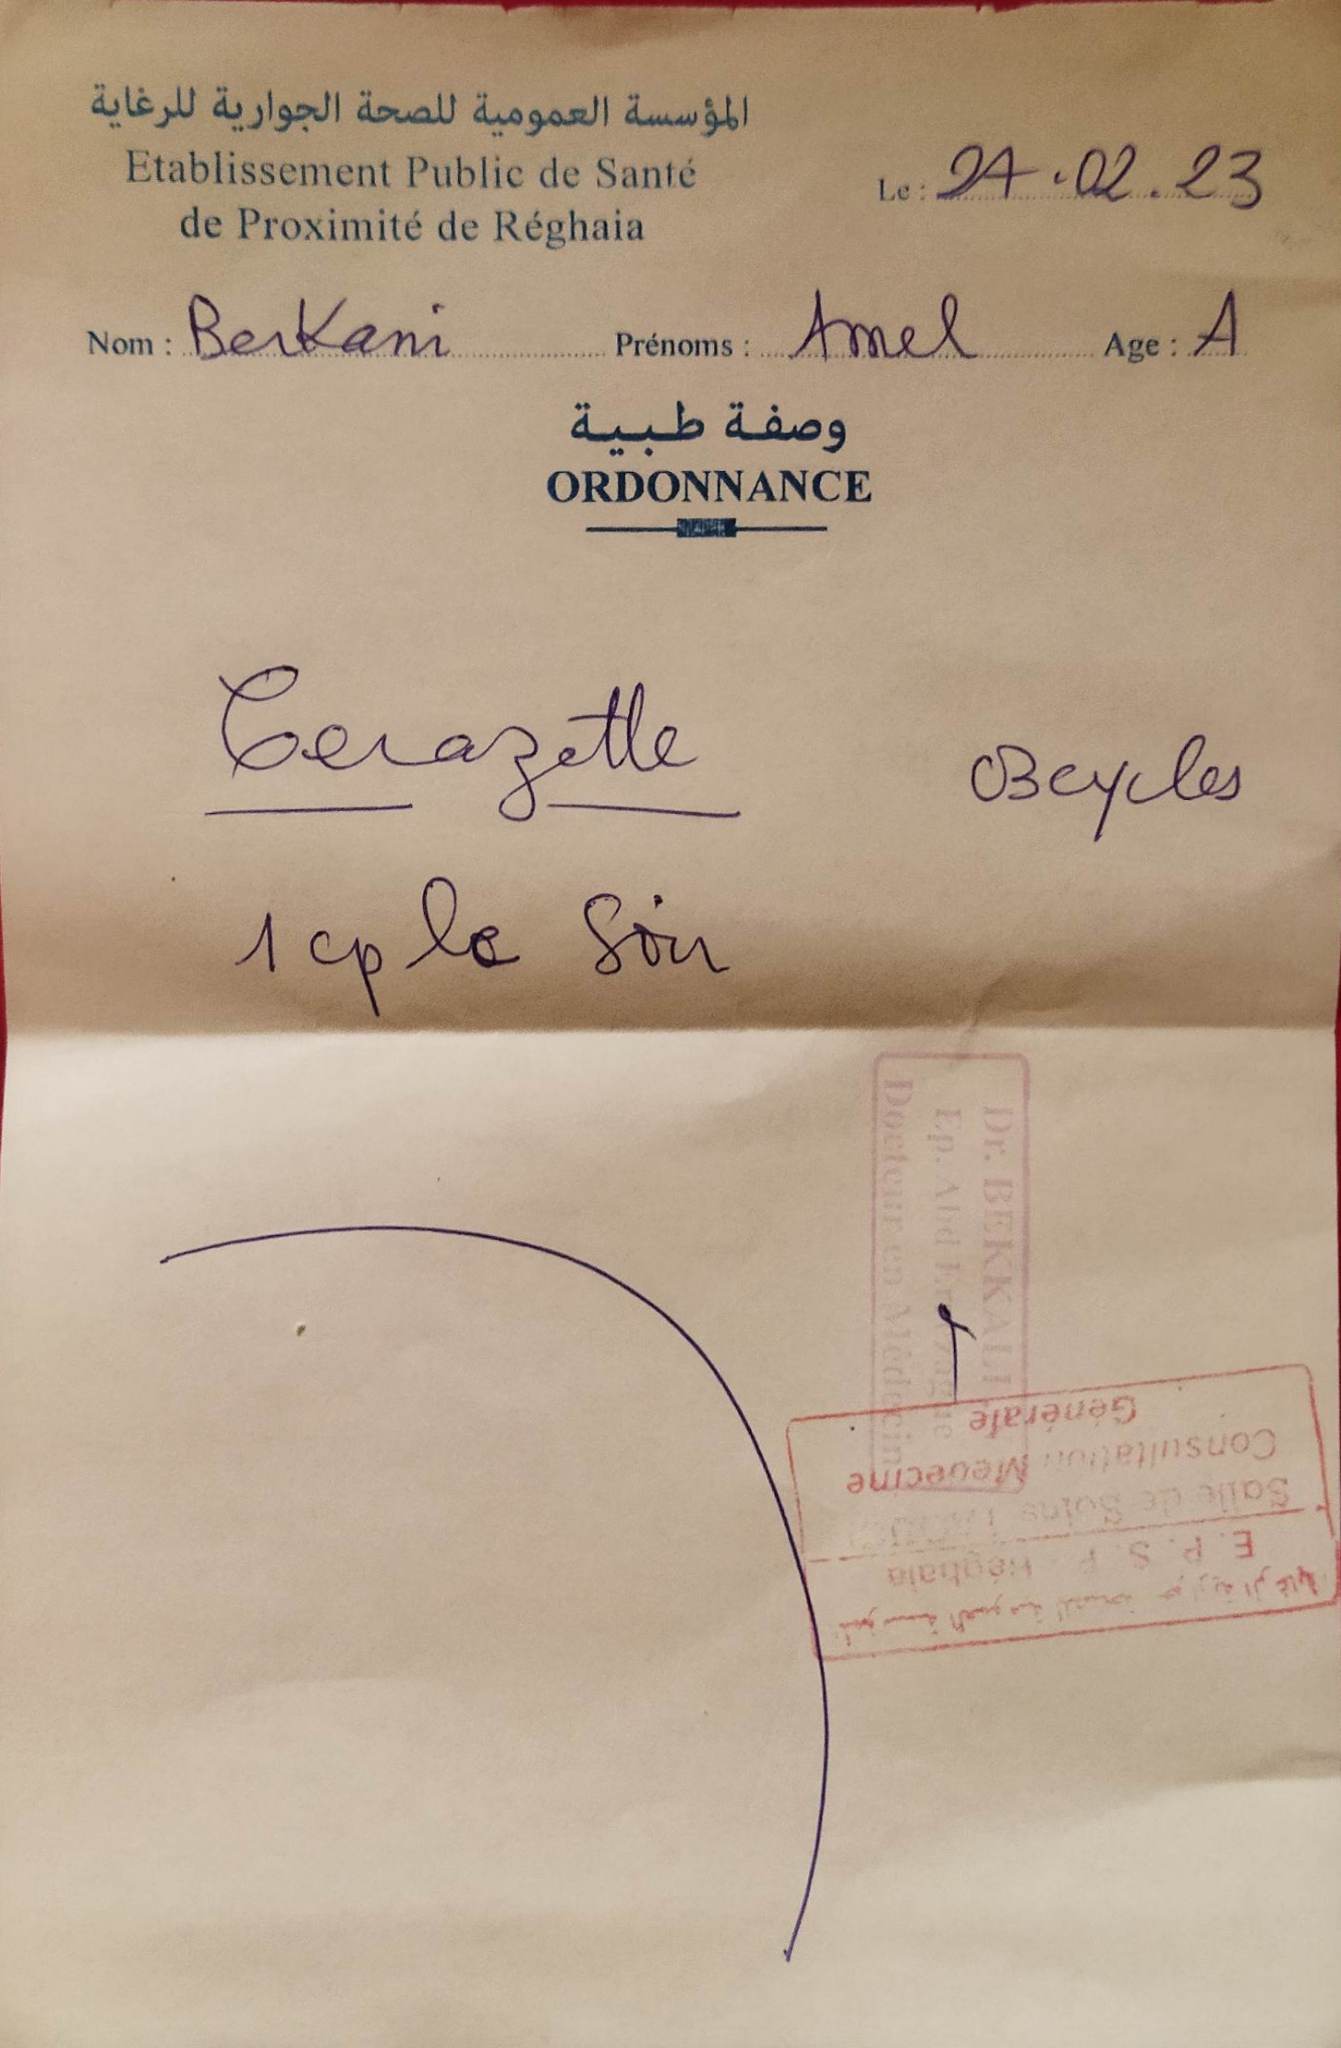 المؤسسة العمومية للصحة الجوارية للرغاية
Etablissement Public de Santé
de Proximité de Réghaia
Le : 27.02.23
Nom : Berkani Prénoms : Amel Age : A
وصفة طبية
ORDONNANCE
Cerazette 03cycles
1 cp le Soir
Dr. BEKKALI
Ep. Abd
Docteur en Médecine
المؤسسة العمومية للصحة الجوارية الرغاية
E. P. S. P. Réghaia
Salle de Soins
Consultation Médecine
Générale